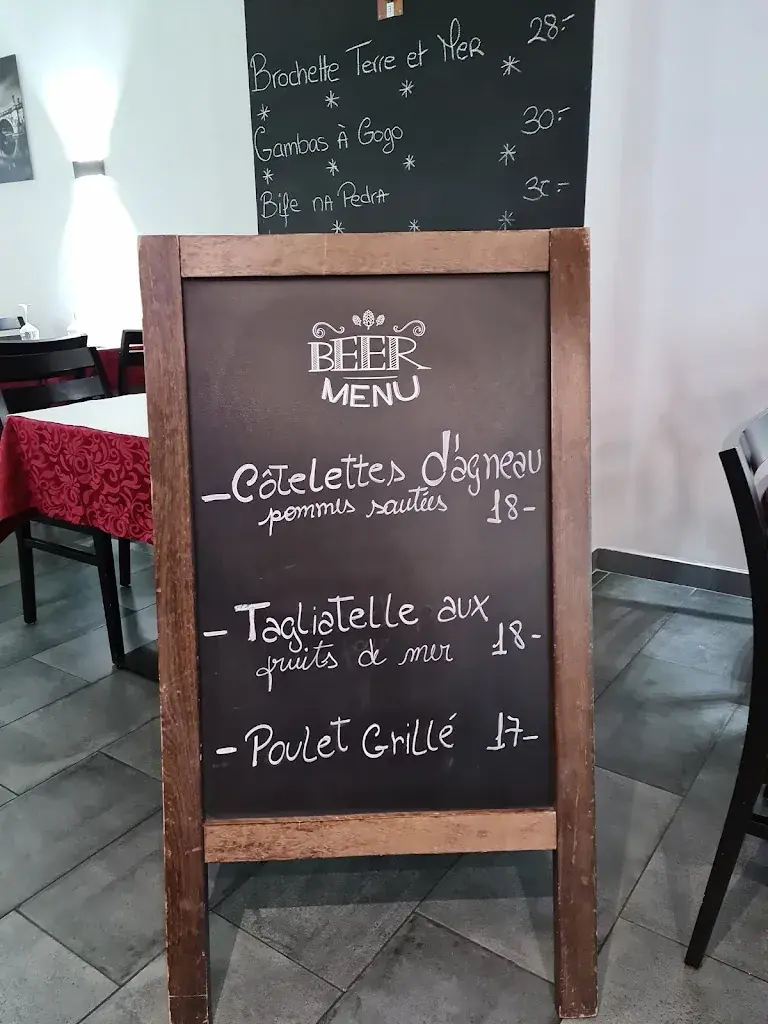 Brochette Terre et Mer 28.-
Gambas À Gogo 30.-
Bife na Pedra 30.-
BEER
MENU
- Côtelettes d'agneau
pommes sautées 18-
- Tagliatelle aux
fruits de mer 18-
- Poulet Grillé 17-